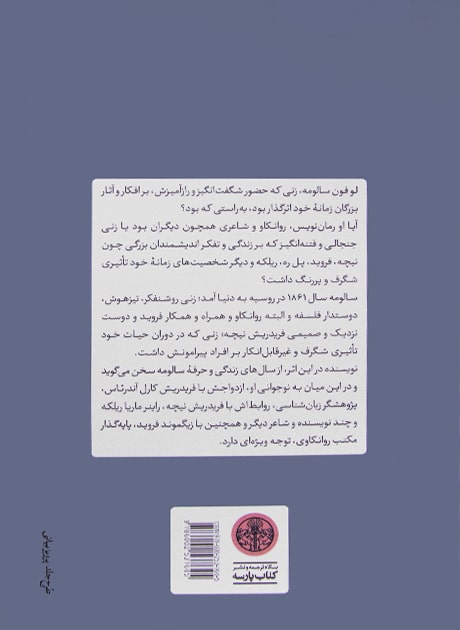 لو فون سالومه، زنی که حضور شگفت‌انگیز و رازآمیزش، بر افکار و آثار
بزرگان زمانهٔ خود اثرگذار بود، به‌راستی که بود؟
آیا او رمان‌نویس، روانکاو و شاعری همچون دیگران بود یا زنی
جنجالی و فتنه‌انگیز که بر زندگی و تفکر اندیشمندان بزرگی چون
نیچه، فروید، پل ره، ریلکه و دیگر شخصیت‌های زمانهٔ خود تأثیری
شگرف و پررنگ داشت؟
سالومه سال ۱۸۶۱ در روسیه به دنیا آمد؛ زنی روشنفکر، تیزهوش،
دوستدار فلسفه و البته روانکاو و همراه و همکار فروید و دوست
نزدیک و صمیمی فریدریش نیچه؛ زنی که در دوران حیات خود
تأثیری شگرف و غیرقابل‌انکار بر افراد پیرامونش داشت.
نویسنده در این اثر، از سال‌های زندگی و حرفهٔ سالومه سخن می‌گوید
و در این میان به نوجوانی او، ازدواجش با فریدریش کارل آندرئاس،
پژوهشگر زبان‌شناسی، روابط‌اش با فریدریش نیچه، راینر ماریا ریلکه
و چند نویسنده و شاعر دیگر و همچنین با زیگموند فروید، پایه‌گذار
مکتب روانکاوی، توجه ویژه‌ای دارد.
بنگاه ترجمه و نشر
کتاب پارسه
طرح جلد: پرویز بیانی